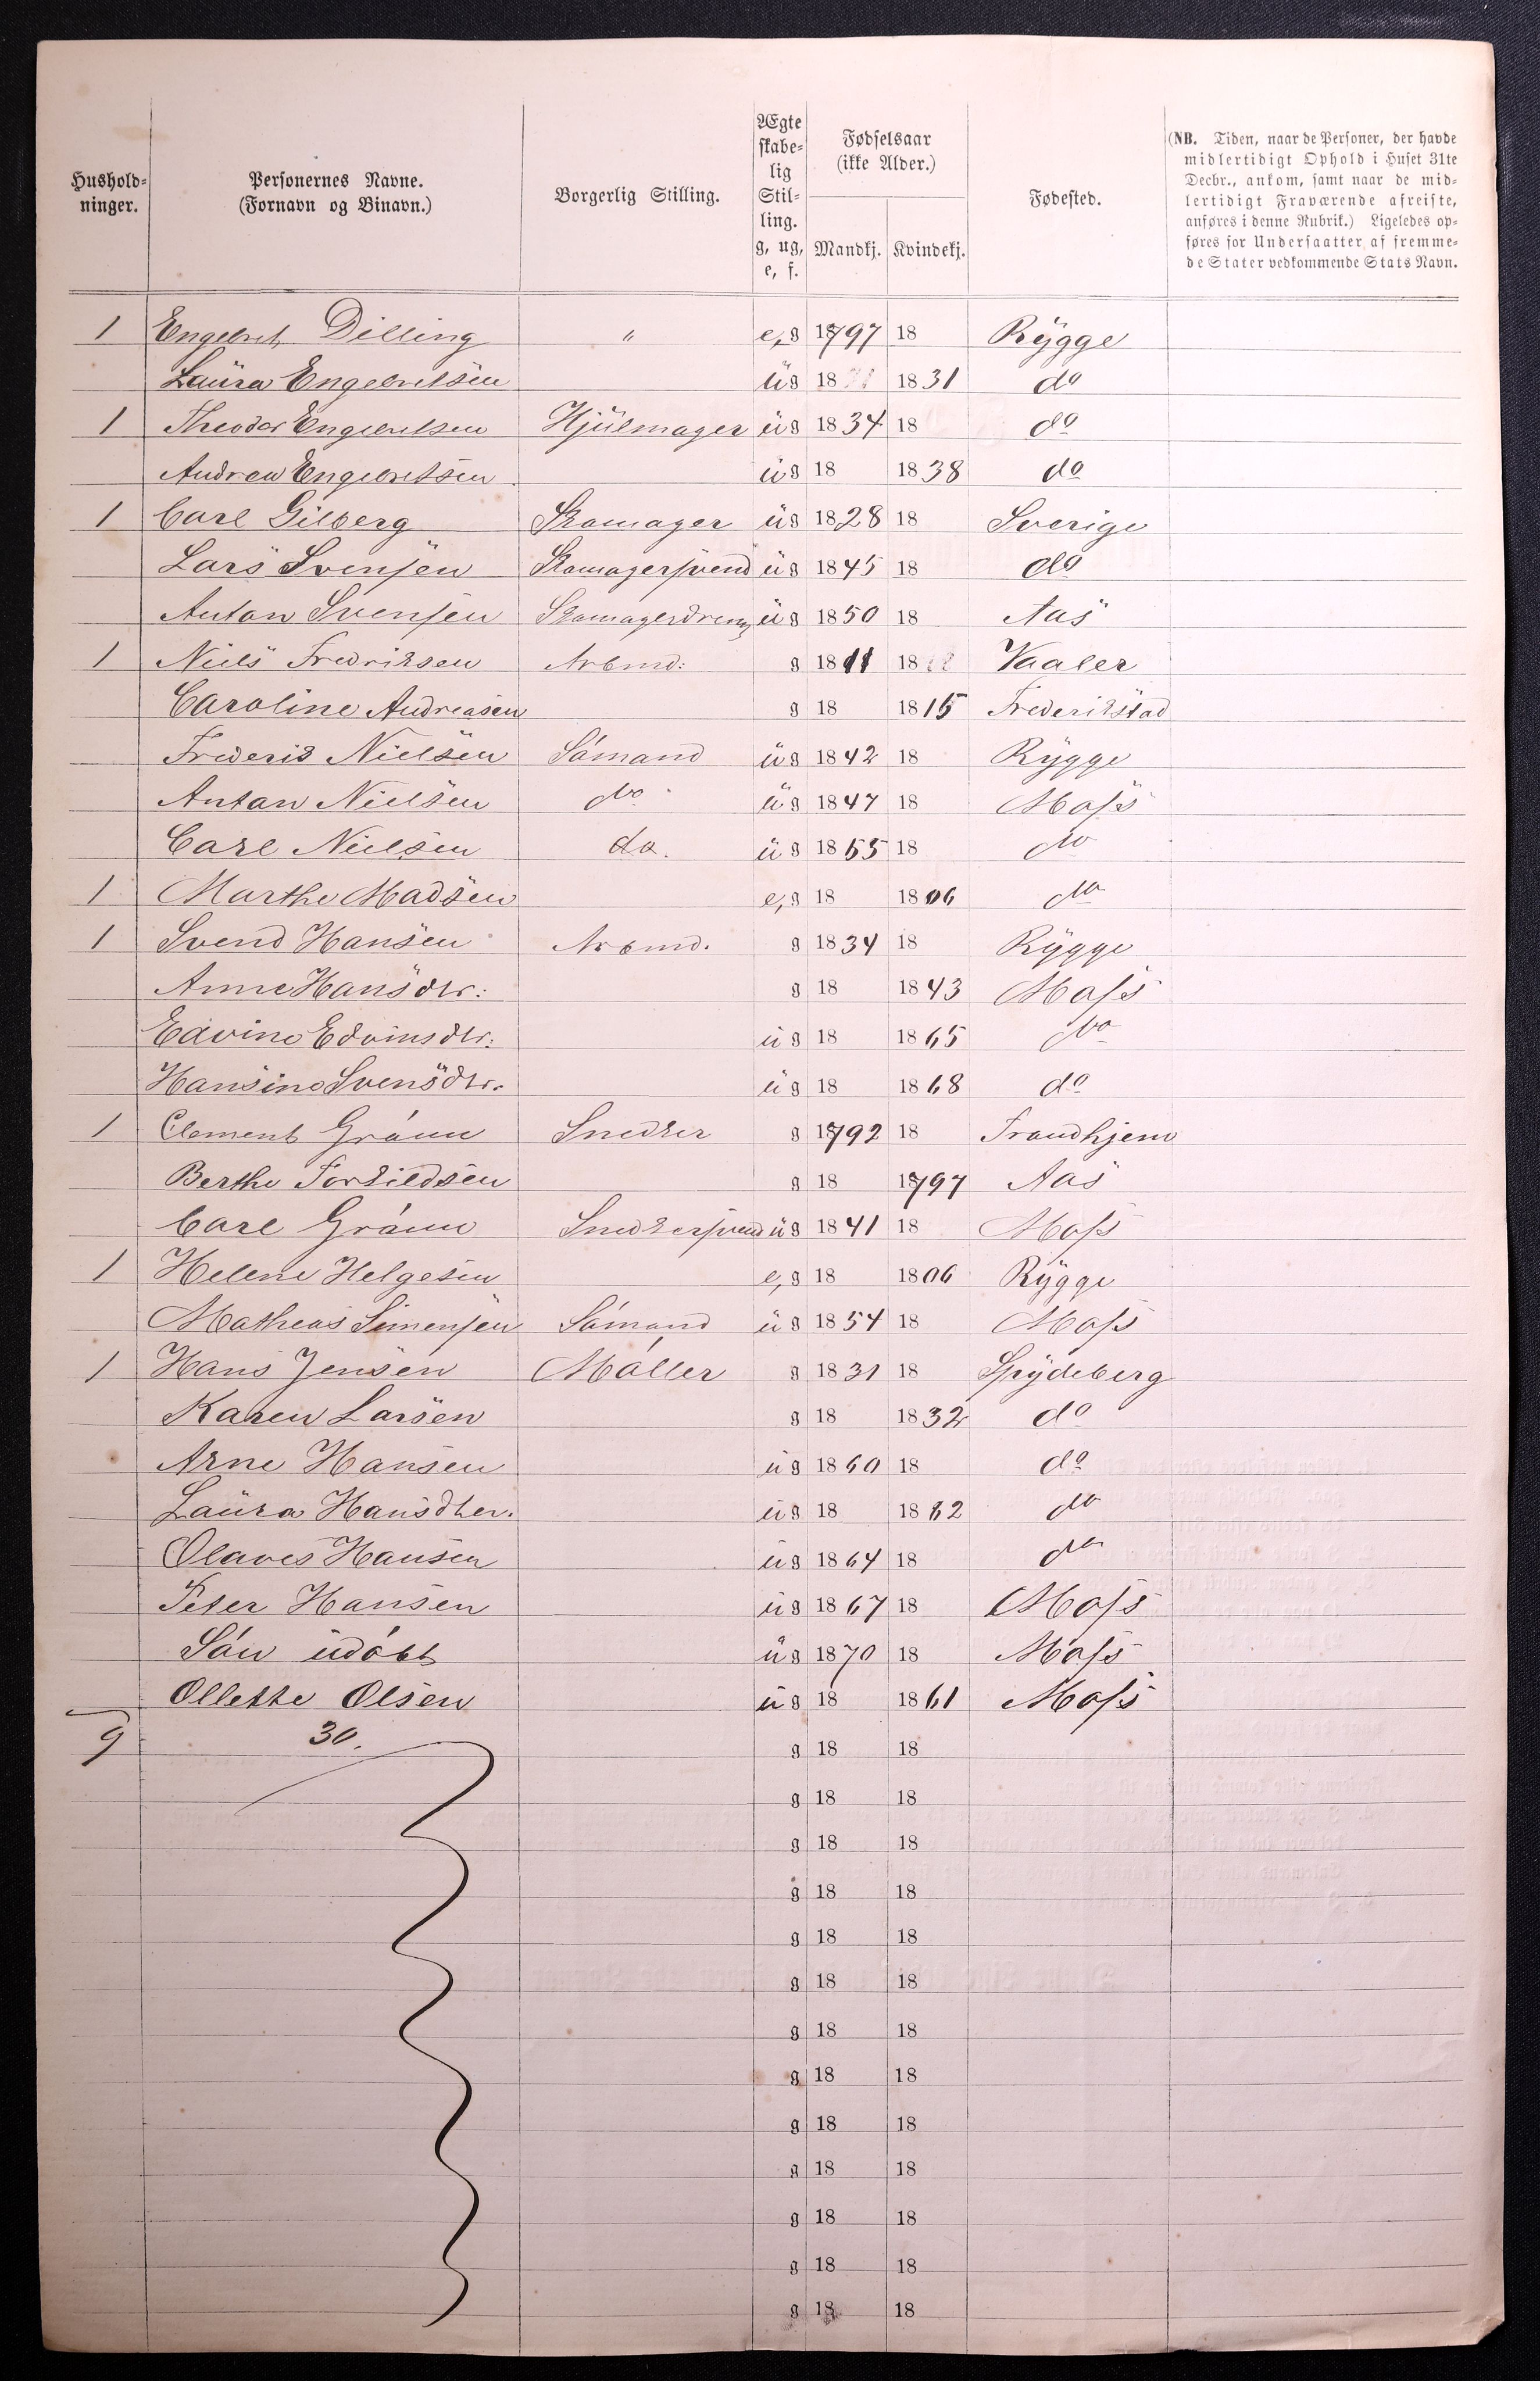 Hushold-
ninger.
Personernes Navne.
(Fornavn og Binavn.)
Borgerlig Stilling.
Ægte
skabe-
lig
Stil-
ling.
g, ug,
e, f.
Fødselsaar
(ikke Alder.)
Mandkj. Kvindekj.
Fødested.
(NB. Tiden, naar de Personer, der havde
midlertidigt Ophold i Huset 31te
Decbr., ankom, samt naar de mid-
lertidigt Fraværende afreiste,
anføres i denne Rubrik.) Ligeledes op-
føres for Undersaatter af fremme-
de Stater vedkommende Stats Navn.
1 Engebret Dilling " e,g 1797 18 Rygge
Laura Engebretsen ug 18 1831 do
1 Theodor Engebretsen Hjulmager ug 1834 18 do
Andrea Engebretsen ug 18 1838 do
1 Carl Gilberg Skomager ug 1828 18 Sverige
Lars Svensen Skomagersvend ug 1845 18 do
Anton Svensen Skomagerdreng ug 1850 18 Aas
1 Niels Fredriksen Arbmd: g 1811 18 Vaaler
Caroline Andreasen g 18 1815 Frederikstad
Frederik Nielsen Sómand ug 1842 18 Rygge
Anton Nielsen do ug 1847 18 Moss
Carl Nielsen do. ug 1855 18 do
1 Marthe Madsen e,g 18 1806 do
1 Svend Hansen Arbmd. g 1834 18 Rygge
Anne Hansdtr: g 18 1843 Moss
Edvine Edvinsdtr: ug 18 1865 do
Hansine Svensdtr. ug 18 1868 do
1 Clement Grónn Snedker g 1792 18 Trondhjem
Berthe Torkildsen g 18 1797 Aas
Carl Grónn Snedkersvend ug 1841 18 Moss
1 Helene Helgesen e,g 18 1806 Rygge
Matheas Simensen Sómand ug 1854 18 Moss
1 Hans Jensen Móller g 1831 18 Spydeberg
Karen Larsen g 18 1832 do
Arne Hansen ug 1860 18 do
Laura Hansdter. ug 18 1862 do
Olaves Hansen ug 1864 18 do
Peter Hansen ug 1867 18 Moss
Són udóbt ug 1870 18 Moss
Ollette Olsen ug 18 1861 Moss
9 30. g 18 18
g 18 18
g 18 18
g 18 18
g 18 18
g 18 18
g 18 18
g 18 18
g 18 18
g 18 18
g 18 18
g 18 18
g 18 18